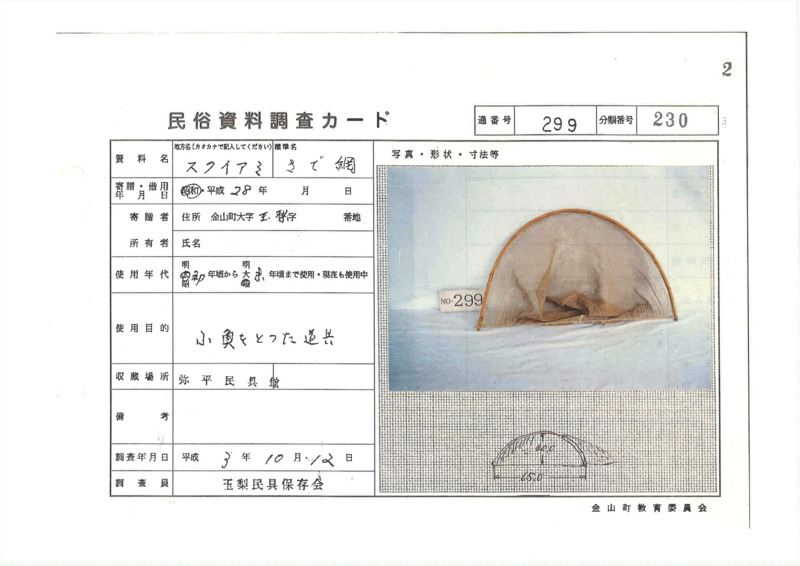 2
民俗資料調査カード
通番号 299 分類番号 230
資料名 地方名(カタカナで記入してください) スクイアミ 標準名 さで網
寄贈・借用年月日 昭和・平成 28年 月 日
寄贈者 住所 金山町大字 玉梨 字 番地
所有者 氏名
使用年代 明 大 昭 初 年頃から 明 大 昭 末 年頃まで使用・現在も使用中
使用目的 小魚をとつた道具
収蔵場所 弥平民具館
備考
調査年月日 平成 3年 10月 12日
調査員 玉梨民具保存会
写真・形状・寸法等
NO. 299
40.0
65.0
金山町教育委員会